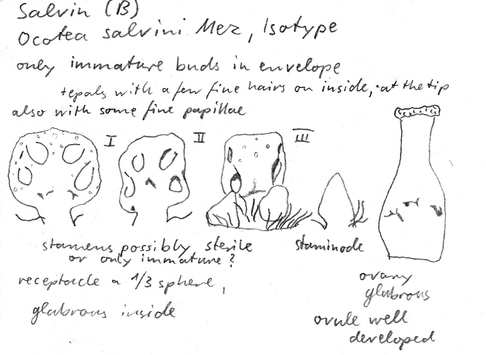 Salvin (B)
Ocotea salvini Mez, Isotype
only immature buds in envelope
tepals with a few fine hairs on inside, at the tip
also with some fine papillae
I II III
stamens possibly sterile
or only immature?
staminode
receptacle a 1/3 sphere,
glabrous inside
ovary
glabrous
ovule well
developed